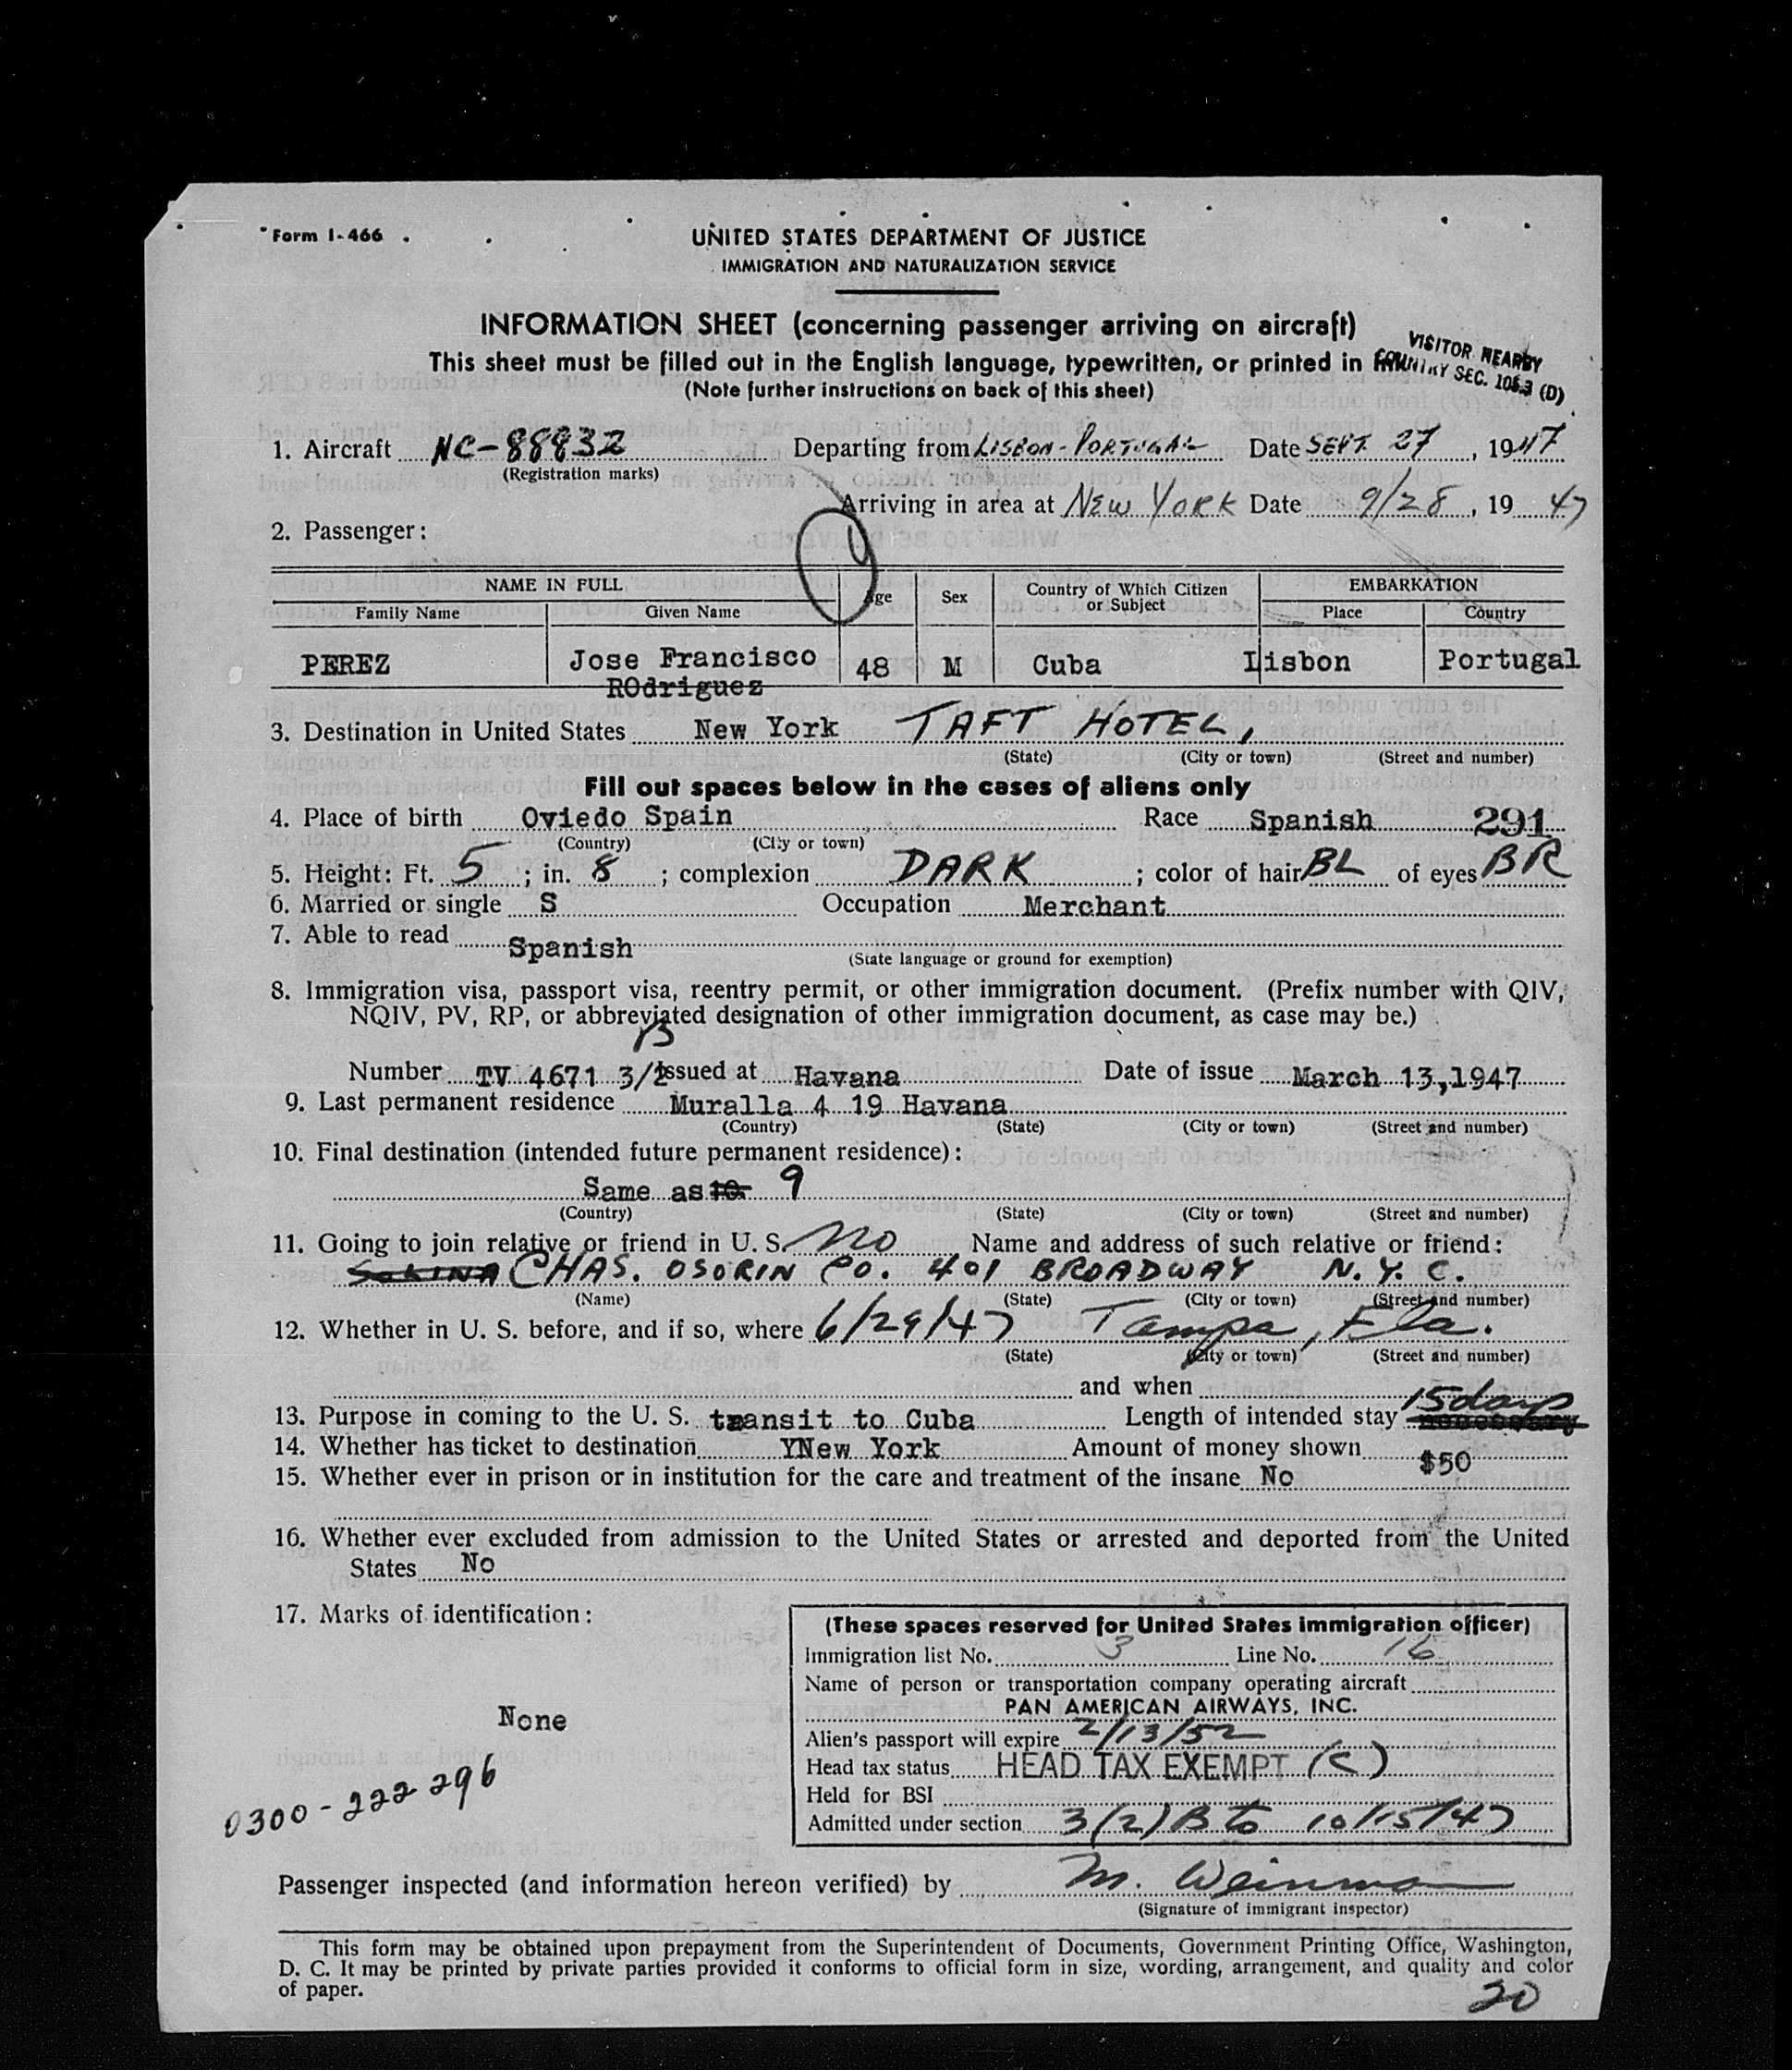 Form I-466
UNITED STATES DEPARTMENT OF JUSTICE
IMMIGRATION AND NATURALIZATION SERVICE
INFORMATION SHEET (concerning passenger arriving on aircraft)
VISITOR NEARBY
This sheet must be filled out in the English language, typewritten, or printed in
COUNTRY SEC. 10 (D)
(Note further instructions on back of this sheet)
1. Aircraft NC-88832 Departing from LISBON - PORTUGAL Date SEPT. 27, 1947
(Registration marks)
Arriving in area at NEW YORK Date 9/28, 19 47
2. Passenger:
NAME IN FULL Age Sex Country of Which Citizen or Subject EMBARKATION
Family Name Given Name Place Country
PEREZ Jose Francisco 48 M Cuba Lisbon Portugal
ROdriguez
3. Destination in United States New York TAFT HOTEL,
(State) (City or town) (Street and number)
Fill out spaces below in the cases of aliens only
4. Place of birth Oviedo Spain Race Spanish 291
(Country) (City or town)
5. Height: Ft. 5; in. 8; complexion DARK; color of hair BL of eyes BR
6. Married or single S Occupation Merchant
7. Able to read Spanish
(State language or ground for exemption)
8. Immigration visa, passport visa, reentry permit, or other immigration document. (Prefix number with QIV,
NQIV, PV, RP, or abbreviated designation of other immigration document, as case may be.)
B
Number TV 4671 3/2 Issued at Havana Date of issue March 13,1947
9. Last permanent residence Muralla 4 19 Havana
(Country) (State) (City or town) (Street and number)
10. Final destination (intended future permanent residence):
Same as 10 9
(Country) (State) (City or town) (Street and number)
11. Going to join relative or friend in U. S. No Name and address of such relative or friend:
CHAS. OSORIN CO. 401 BROADWAY N. Y. C.
(Name) (State) (City or town) (Street and number)
12. Whether in U. S. before, and if so, where 6/29/47 Tampa, Fla.
(State) (City or town) (Street and number)
and when
13. Purpose in coming to the U. S. transit to Cuba Length of intended stay 15 days
14. Whether has ticket to destination YNew York Amount of money shown $50
15. Whether ever in prison or in institution for the care and treatment of the insane No
16. Whether ever excluded from admission to the United States or arrested and deported from the United
States No
17. Marks of identification:
None
0300-222 296
(These spaces reserved for United States immigration officer)
Immigration list No. 3 Line No. 16
Name of person or transportation company operating aircraft
PAN AMERICAN AIRWAYS, INC.
Alien's passport will expire 2/13/52
Head tax status HEAD TAX EXEMPT (C)
Held for BSI
Admitted under section 3(2)B to 10/15/47
Passenger inspected (and information hereon verified) by M. Weinman
(Signature of immigrant inspector)
This form may be obtained upon prepayment from the Superintendent of Documents, Government Printing Office, Washington,
D. C. It may be printed by private parties provided it conforms to official form in size, wording, arrangement, and quality and color
of paper.
20